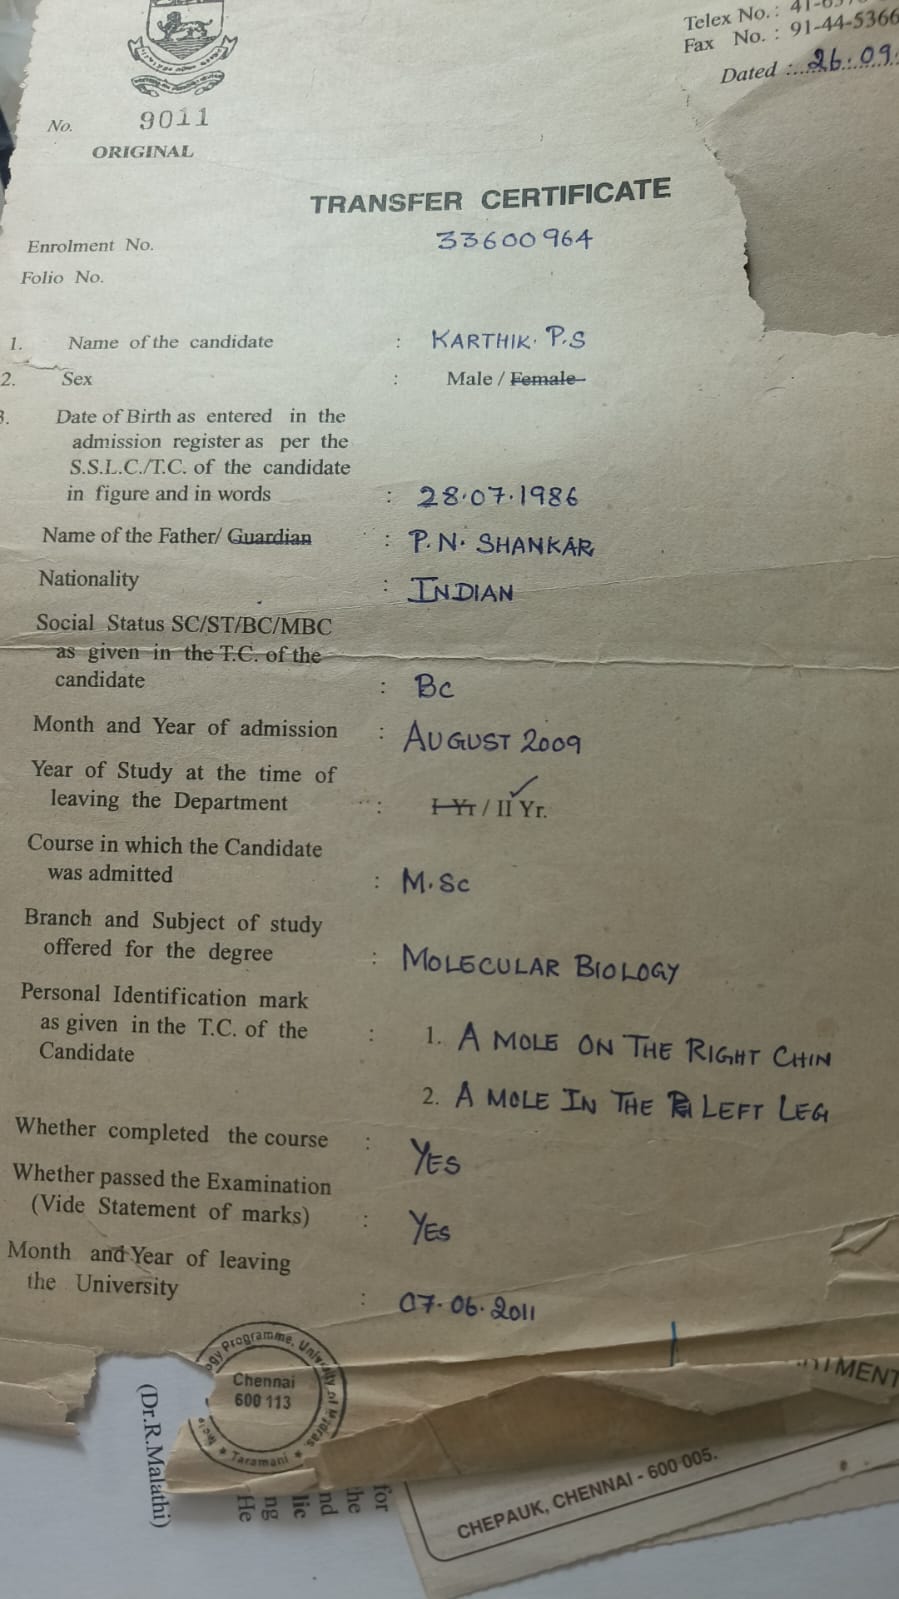 Telex No. :
Fax No. : 91-44-5366
Dated : 26.09.
No. 9011
ORIGINAL
TRANSFER CERTIFICATE
Enrolment No. 33600964
Folio No.
1. Name of the candidate : KARTHIK. P.S
2. Sex : Male / Female
3. Date of Birth as entered in the
admission register as per the
S.S.L.C./T.C. of the candidate
in figure and in words : 28.07.1986
Name of the Father/ Guardian : P.N. SHANKAR
Nationality : INDIAN
Social Status SC/ST/BC/MBC
as given in the T.C. of the
candidate : BC
Month and Year of admission : AUGUST 2009
Year of Study at the time of
leaving the Department : I Yr / II Yr.
Course in which the Candidate
was admitted : M.Sc
Branch and Subject of study
offered for the degree : MOLECULAR BIOLOGY
Personal Identification mark
as given in the T.C. of the : 1. A MOLE ON THE RIGHT CHIN
Candidate
2. A MOLE IN THE LEFT LEG
Whether completed the course : YES
Whether passed the Examination
(Vide Statement of marks) : YES
Month and Year of leaving
the University : 07.06.2011
ogy Programme, University of Madras.
Chennai
600 113
Taramani
(Dr.R.Malathi)
for
the
nd
lic
ng
He
TMENT
CHEPAUK, CHENNAI - 600 005.